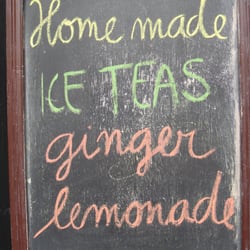 Home made
ICE TEAS
ginger
lemonade